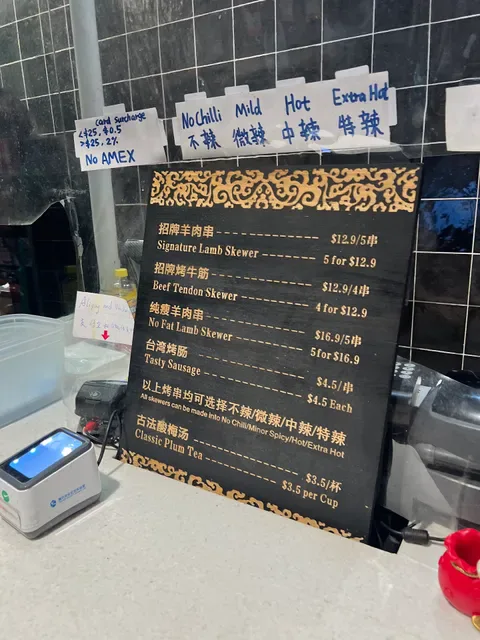 Card surcharge
<$25, $0.5
>$25, 2%
No AMEX
No Chilli Mild Hot Extra Hot
不辣 微辣 中辣 特辣
招牌羊肉串 $12.9/5串
Signature Lamb Skewer 5 for $12.9
招牌烤牛筋 $12.9/4串
Beef Tendon Skewer 4 for $12.9
纯瘦羊肉串 $16.9/5串
No Fat Lamb Skewer 5 for $16.9
台湾烤肠 $4.5/串
Tasty Sausage $4.5 Each
以上烤串均可选择不辣/微辣/中辣/特辣
All skewers can be made into No Chilli/Minor Spicy/Hot/Extra Hot
古法酸梅汤 $3.5/杯
Classic Plum Tea $3.5 per Cup
Alipay and